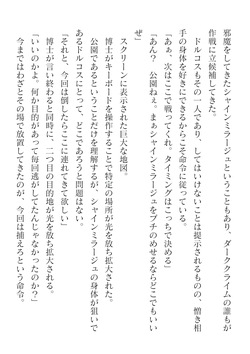 邪魔をしてきたシャインミラージュということもあり、ダーククライムの誰もが
作戦に立候補してきた。
　ドルコスもその一人であり、してはいけないことは提示されるものの、憎き相
手の身体を好きにできるからこそ命令には従っている。
「あぁ、次はここで戦ってくれ。タイミングはこっちで決める」
「あん？　公園ねぇ。まぁシャインミラージュをブチのめせるならどこでもいい
ぜ」
　スクリーンに表示された巨大な地図。
　博士がキーボードを操作することで特定の場所が光を放ち拡大される。
　公園であるということだけを理解するが、シャインミラージュの身体が狙いで
あるドルコスにとって、どこであろうと問題はない。
「それと、今回は倒したらここに連れてきて欲しい」
　博士が言い終わると同時に、二つ目の目的地が光を放ち拡大される。
「いいのかよ。何か目的があって毎回逃がしてたんじゃなかったのか？」
　今まではわざとその場で放置してきたのが、今回は捕えろという命令。